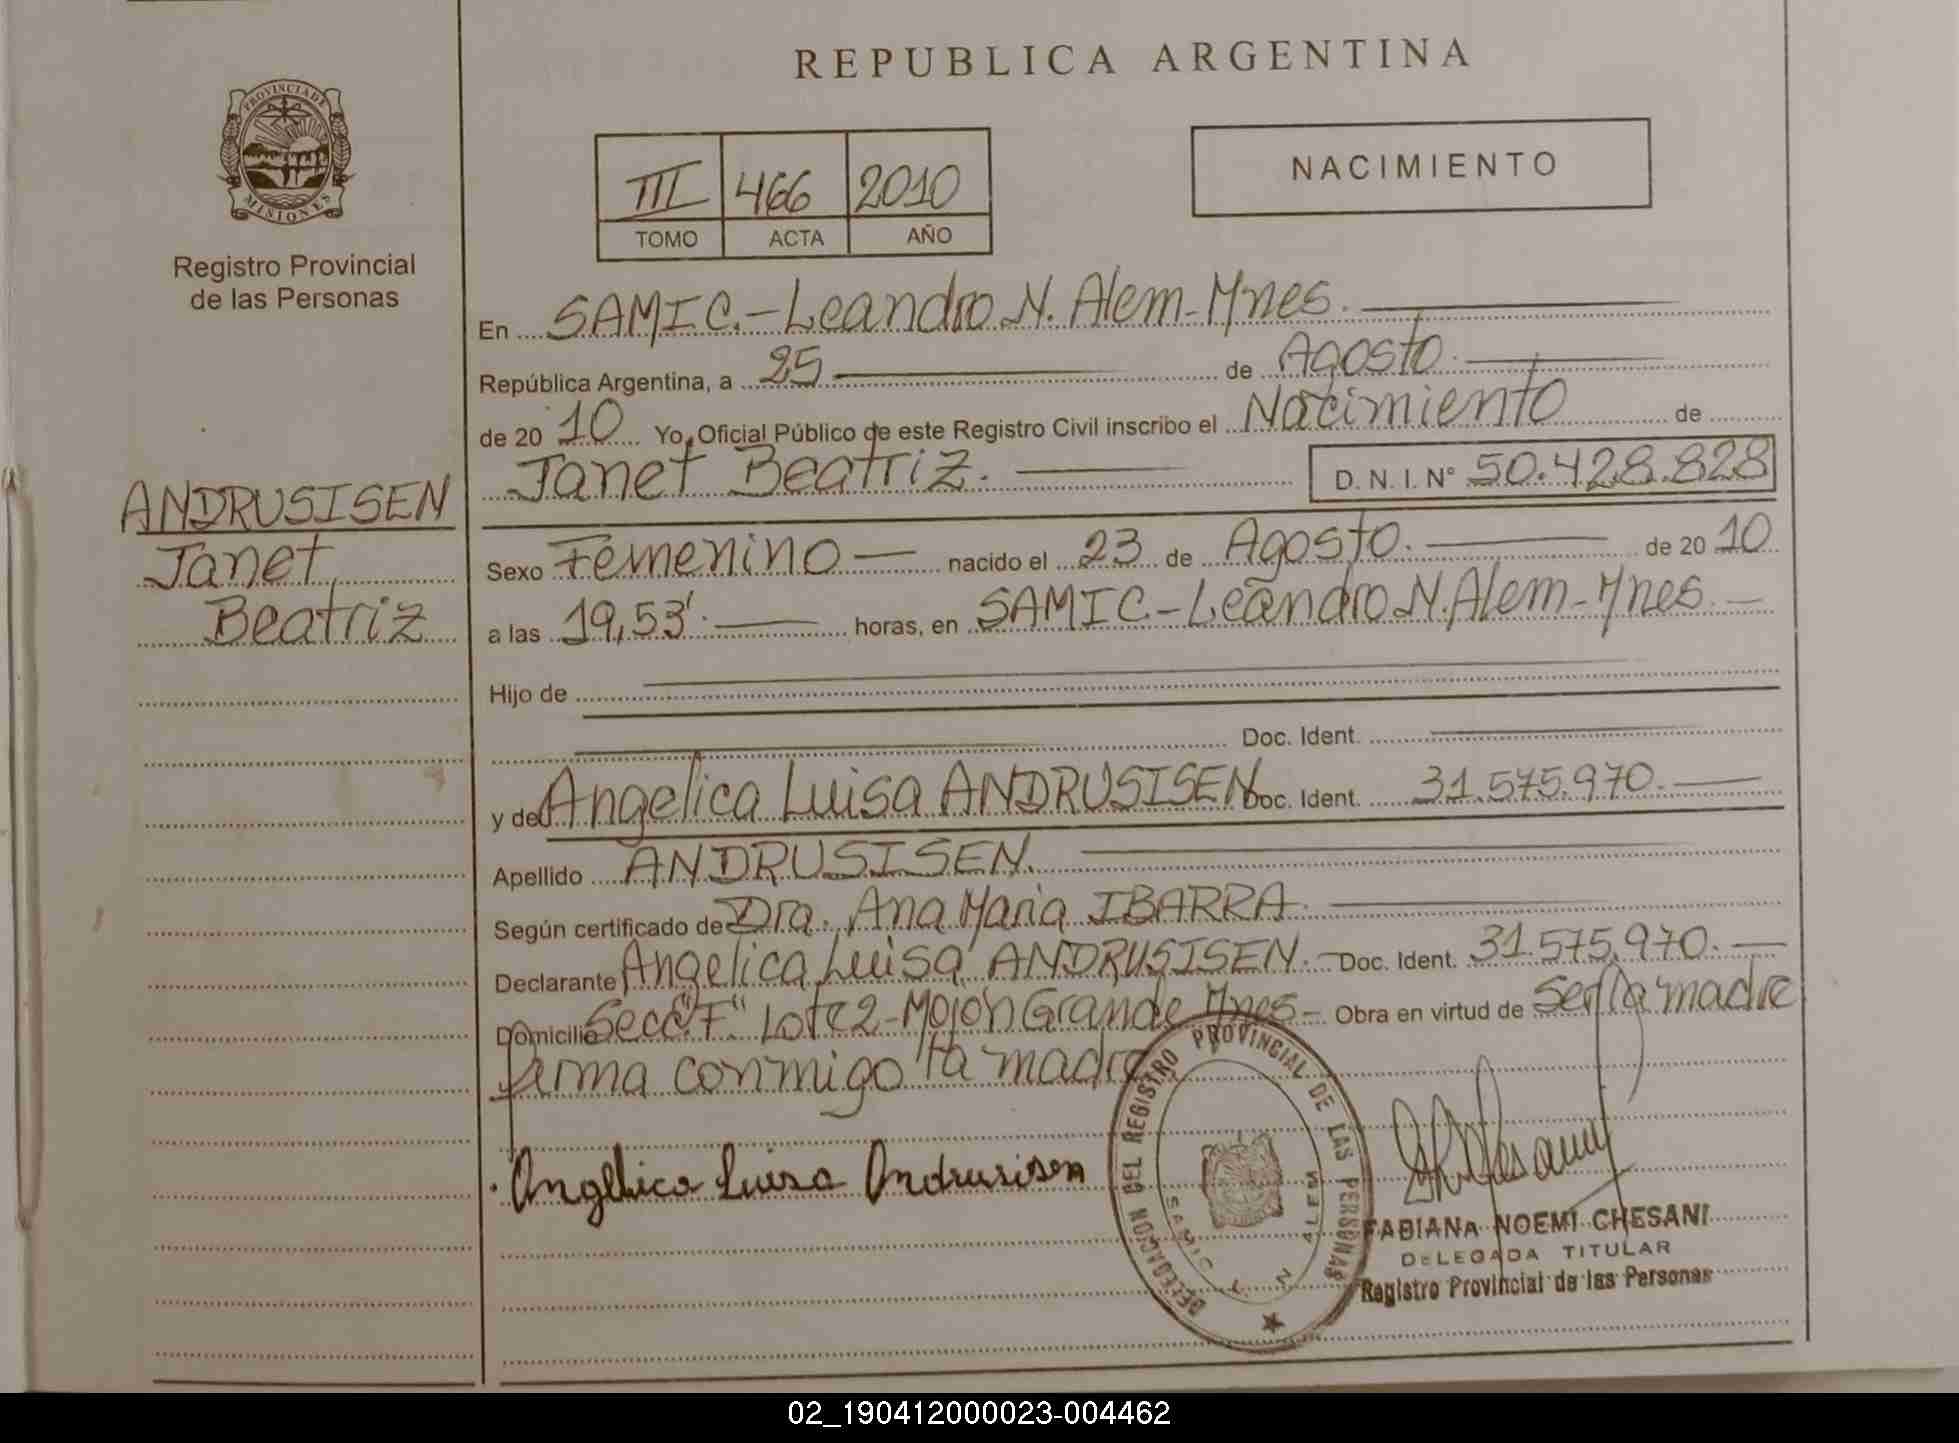 REPUBLICA ARGENTINA
PROVINCIA DE
MISIONES
Registro Provincial
de las Personas
III 466 2010
TOMO ACTA AÑO
NACIMIENTO
En SAMIC.-Leandro N. Alem-Mnes.
República Argentina, a 25 de Agosto
de 20 10 Yo, Oficial Público de este Registro Civil inscribo el Nacimiento de
Janet Beatriz. D. N. I. N° 50.428.828
ANDRUSISEN
Janet
Beatriz
Sexo Femenino nacido el 23 de Agosto. de 20 10
a las 19,53'. horas, en SAMIC-Leandro N. Alem-Mnes.
Hijo de
Doc. Ident.
y de Angelica Luisa ANDRUSISEN Doc. Ident. 31.575.970.
Apellido ANDRUSISEN.
Según certificado de Dra. Ana Maria IBARRA.
Declarante Angelica Luisa ANDRUSISEN. Doc. Ident. 31.575.970.
Domicilio Secc "F" Lote 2-Mojón Grande Mnes- Obra en virtud de Ser la madre
firma conmigo la madre
Angelica Luisa Andrusisen
DELEGACION DEL REGISTRO PROVINCIAL DE LAS PERSONAS
SAMIC L N ALEM
FABIANA NOEMI CHESANI
DELEGADA TITULAR
Registro Provincial de las Personas
02_190412000023-004462